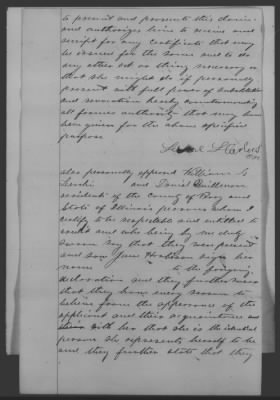 to present and prosecute this claim
and authorizes him to receive and
receipt for any certificate that may
be issued for the same and to do
any other act or thing necessary or
that she might do if personally
present with full power of substitution
and revocation hereby countermanding
all former authority that may have
been given for the above specified
purpose
also personally appeared William G
and Daniel
residents of the County of and
State of Illinois persons whom I
certify to be respectable and entitled to
credit and who being by me duly
sworn say that they were present
and saw Jane sign her
name to the foregoing
declaration and they further swear
that they have every reason to
believe from the appearance of the
applicant and their acquaintance
with her that she is the identical
person she represents herself to be
and they further state that they